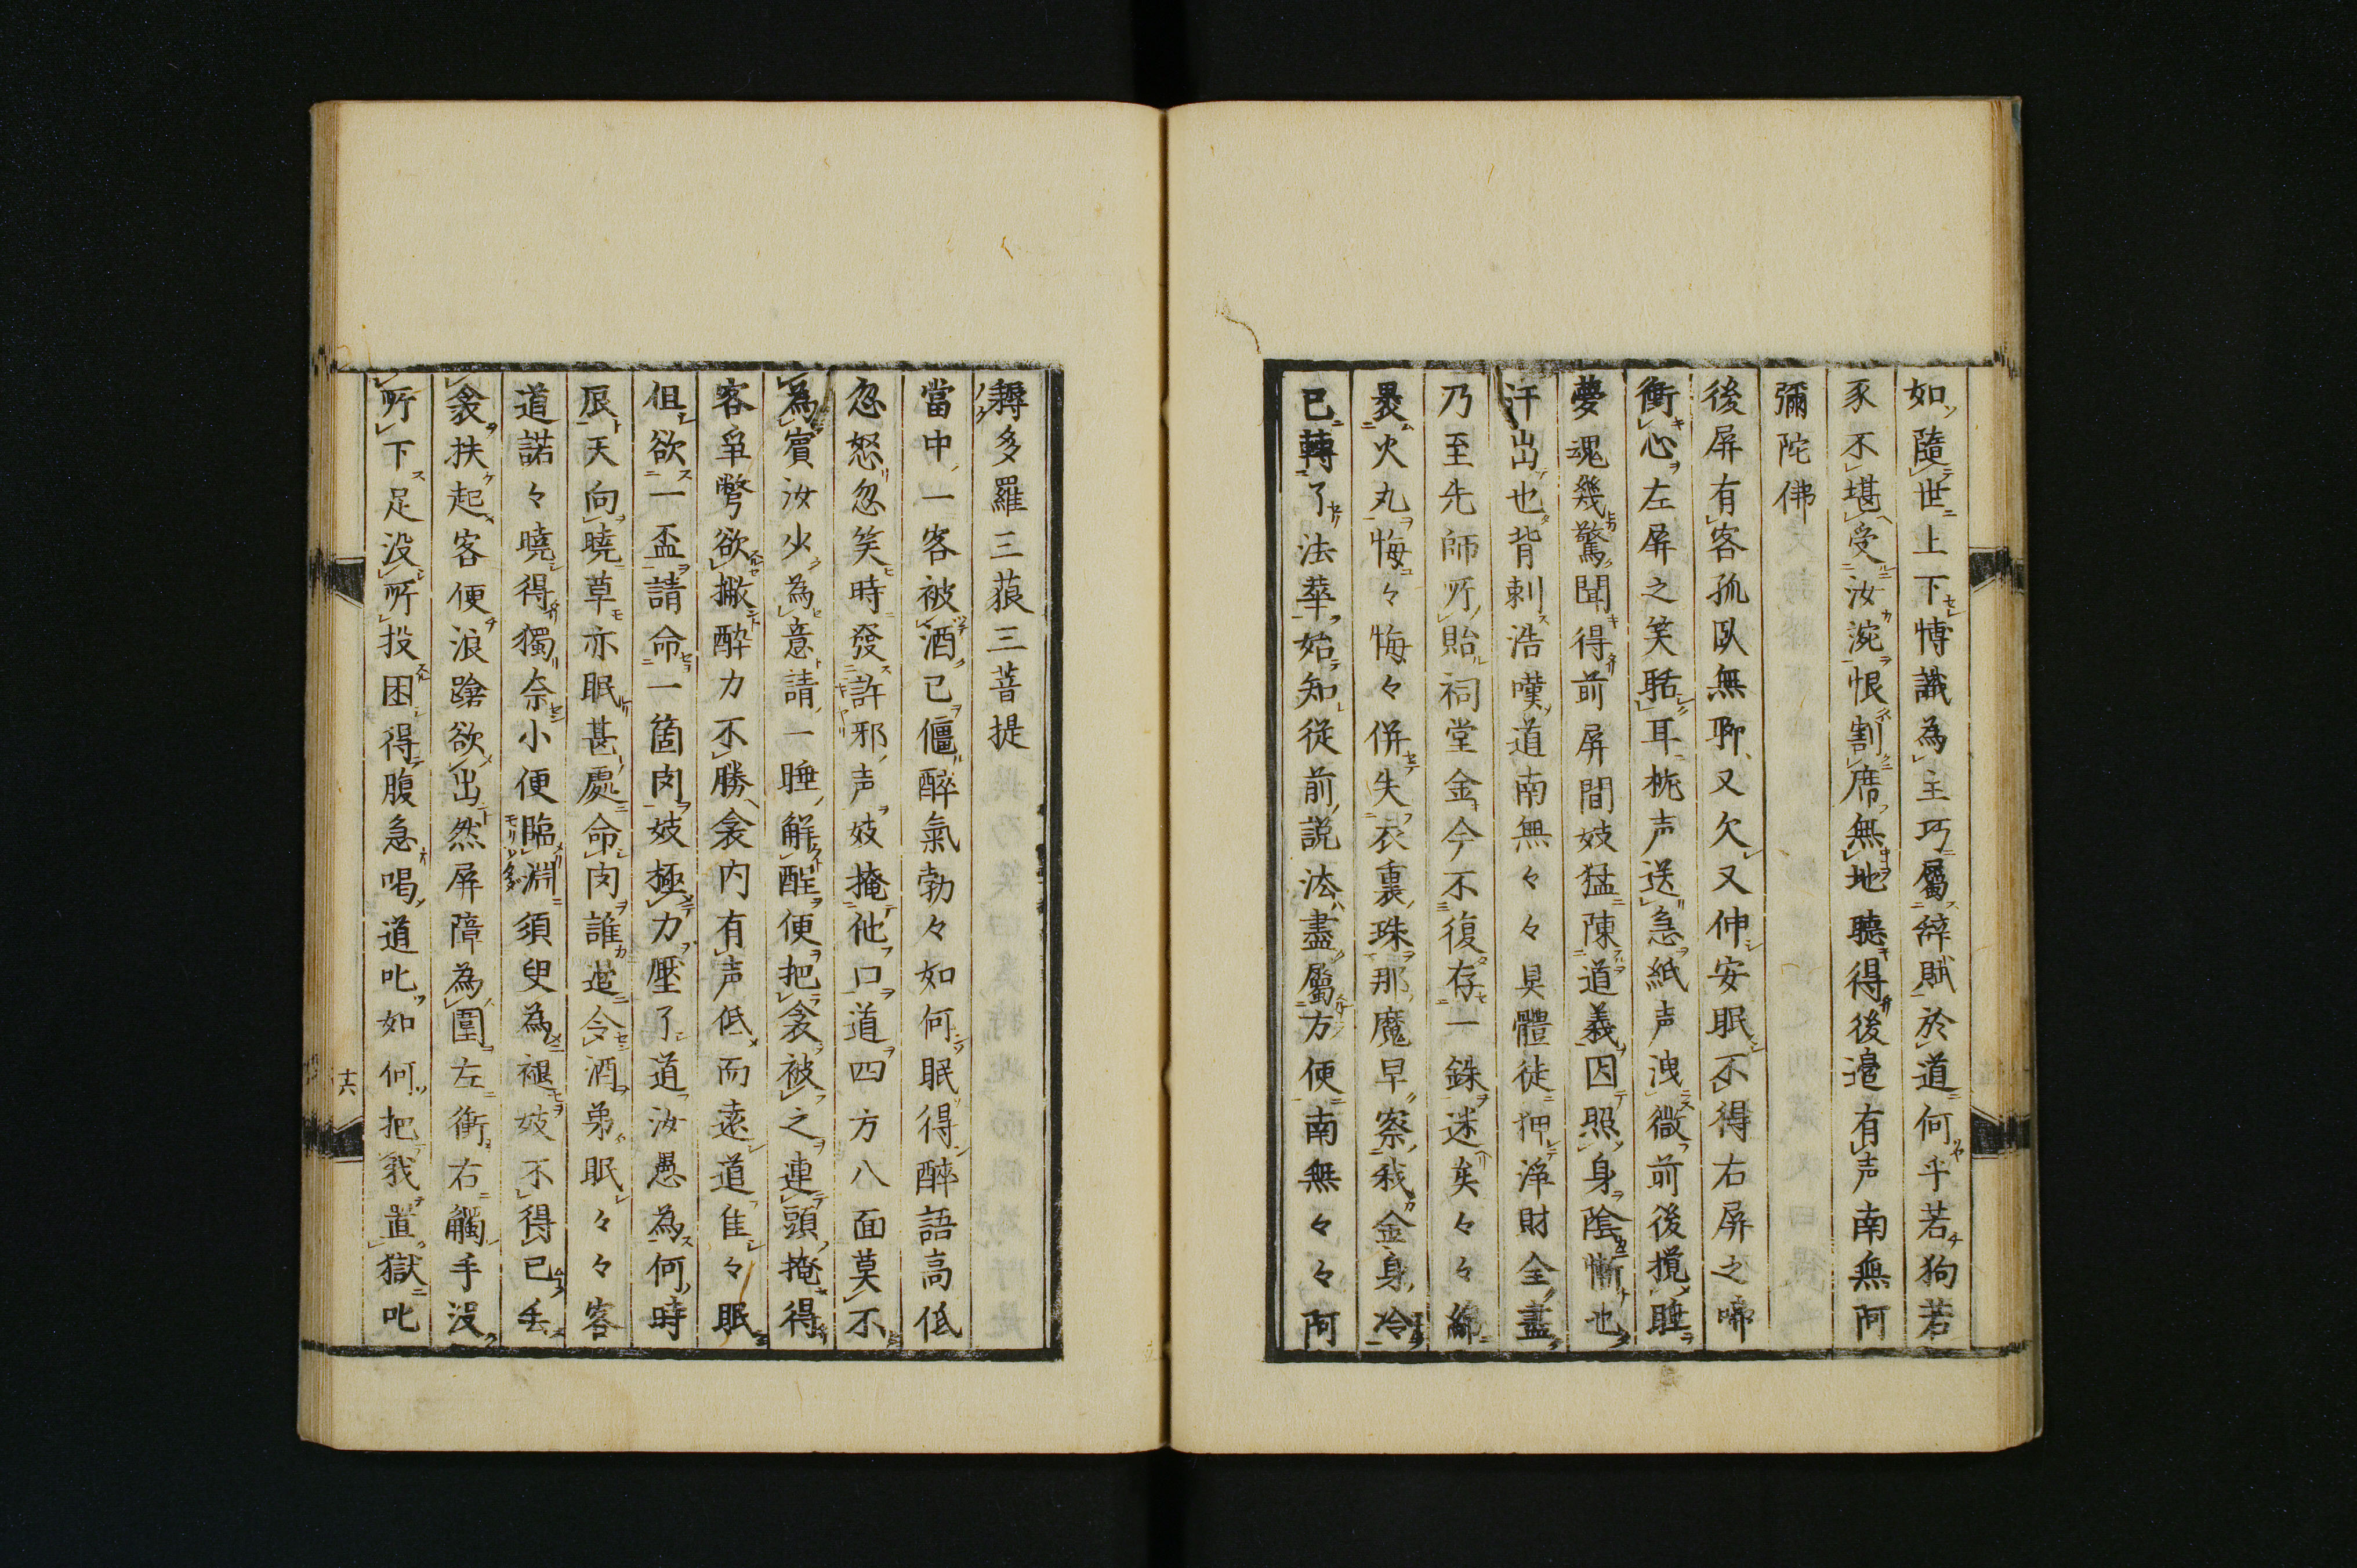 如隨世上下博識為主巧屬辞賦於道何乎若狗若
豕不堪受汝涴恨割席無地聽得後邉有声南無阿
彌陀佛
後屏有客孤臥無聊又欠又伸安眠不得右屏之啼
衝心左屏之笑聒耳梚声送急紙声洩微前後攪睡
夢魂幾驚聞得前屏間妓猛陳道義因照身陰慚也
汗出也背刺浩嘆道南無々々具體徒狎淨財全盡
乃至先師所貽祠堂金今不復存一銖迷矣々々綿
褁火丸悔々悔々併失衣裏珠那魔早察我金身冷
已轉了法華始知從前説法盡屬方便南無々々阿
耨多羅三藐三菩提
當中一客被酒已偃醉氣勃々如何眠得醉語高低
忽怒忽笑時發許邪声妓掩他口道四方八面莫不
為賓汝少為意請一睡解酲便把衾被之連頭掩得
客爭彆欲撇酔力不勝衾内有声低而遠道隹々眠
但欲一盃請命一箇肉妓極力壓了道汝愚為何時
辰天向曉草亦眠甚處命肉誰遣令酒弟眠々々客
道諾々曉得獨奈小便臨淵須臾為褪妓不得已丢
衾扶起客便浪蹌欲出然屏障為圍左衝右觸手没
所下足没所投困得腹急喝道叱如何把我置獄叱
十六